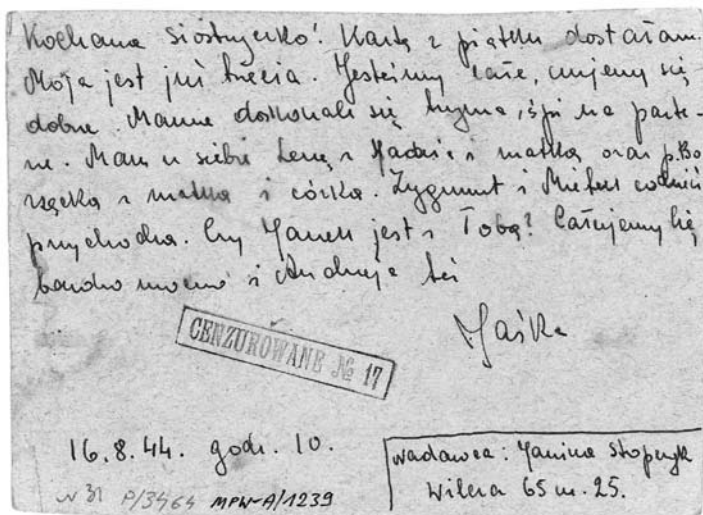 Kochana Siostrzyczko! Kartę z piątku dostałam.
Moja jest już trzecia. Jesteśmy całe, czujemy się
dobrze. Mamme doskonale się trzyma, śpi na parte-
rze. Mam u siebie Lenę z Madzią i matką oraz p. Bo
rzęcką z matką i córką. Zygmunt i Mietek codzień
przychodzą. Czy Janek jest z Tobą? Całujemy Cię
bardzo mocno i Andrzeja też
Jaśka
CENZUROWANE № 17
16.8.44. godz. 10.
nadawca: Janina
Wilcza 65 m. 25.
P/3464 MPW-A/1239